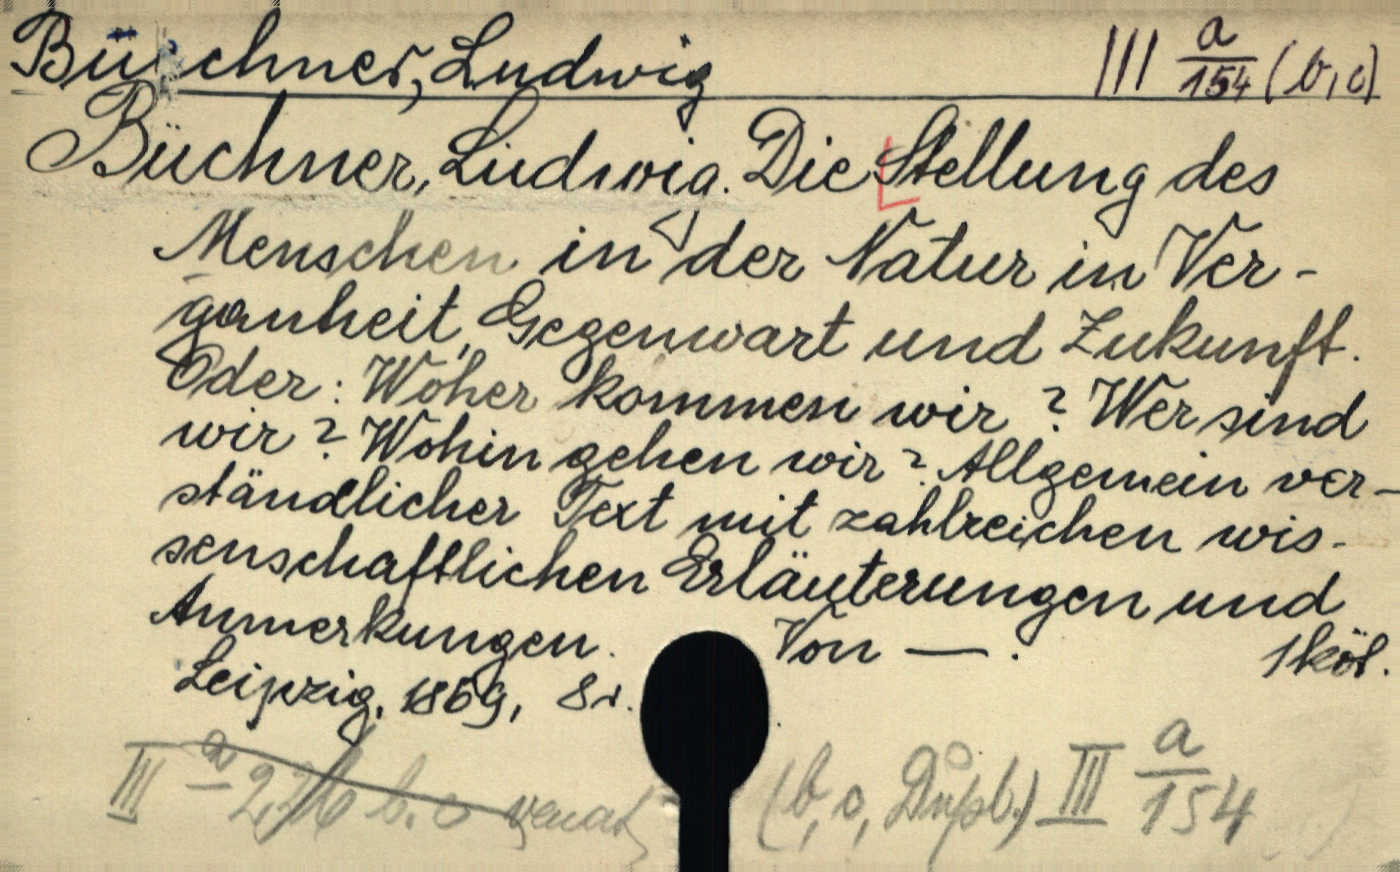 Büchner, Ludwig III a/154 (b, c)
Büchner, Ludwig. Die Stellung des
Menschen in der Natur in Ver-
ganheit, Gegenwart und Zukunft.
Oder: Woher kommen wir? Wer sind
wir? Wohin gehen wir? Allgemein ver-
ständlicher Text mit zahlreichen wis-
senschaftlichen Erläuterungen und
Anmerkungen. Von —. 1 köt.
Leipzig, 1869, 8r.
III a (b, c, Dupb.) III a/154